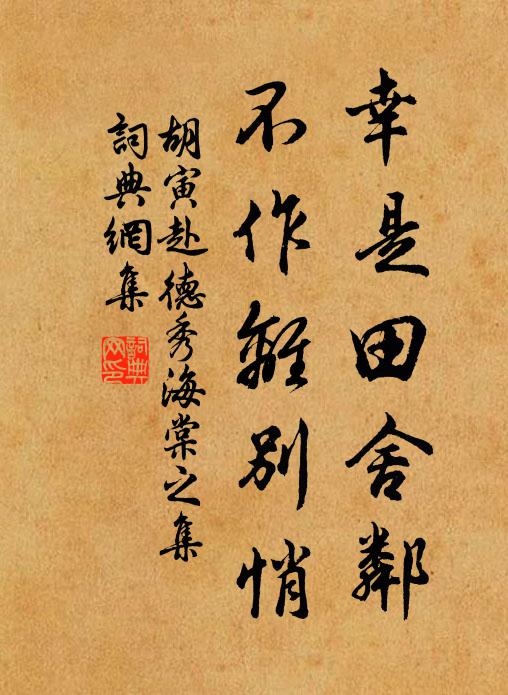 幸是田舍鄰
不作離別悄
胡寅赴德秀海棠之集
詞典網集
詞典网印